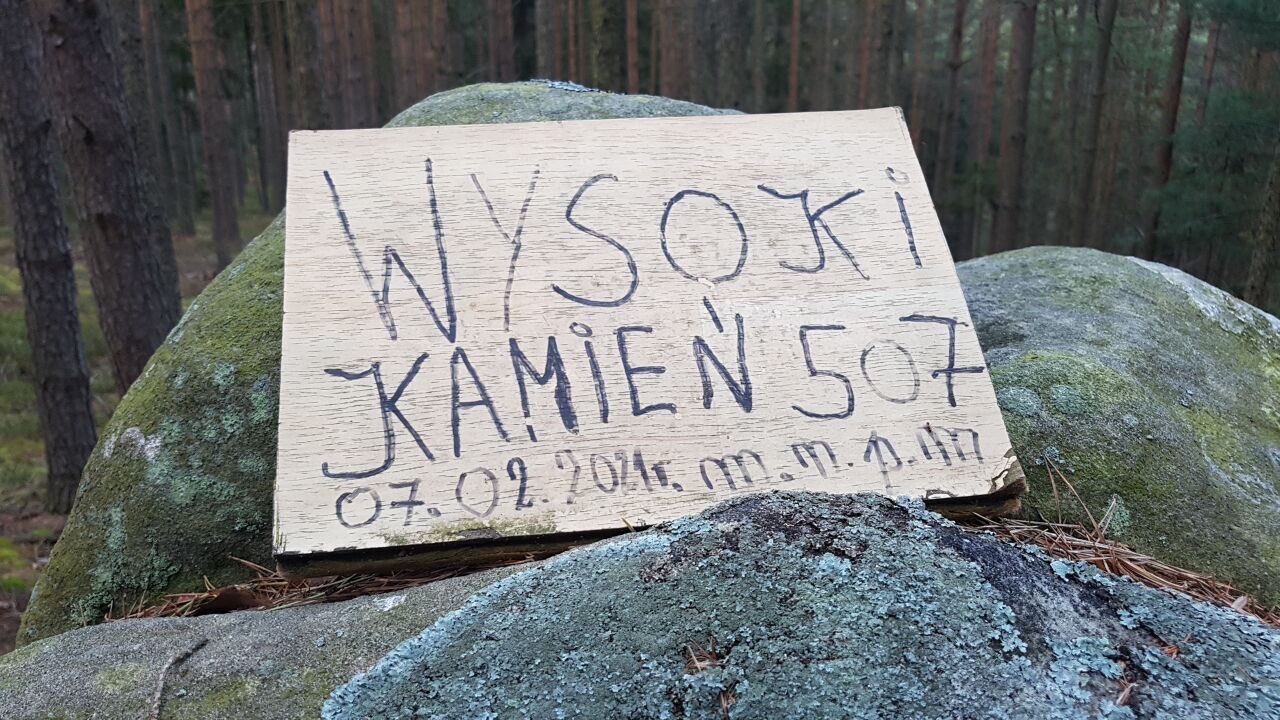 WYSOKi
KAMiEŃ 507
07.02.2021r. m.n.p.m